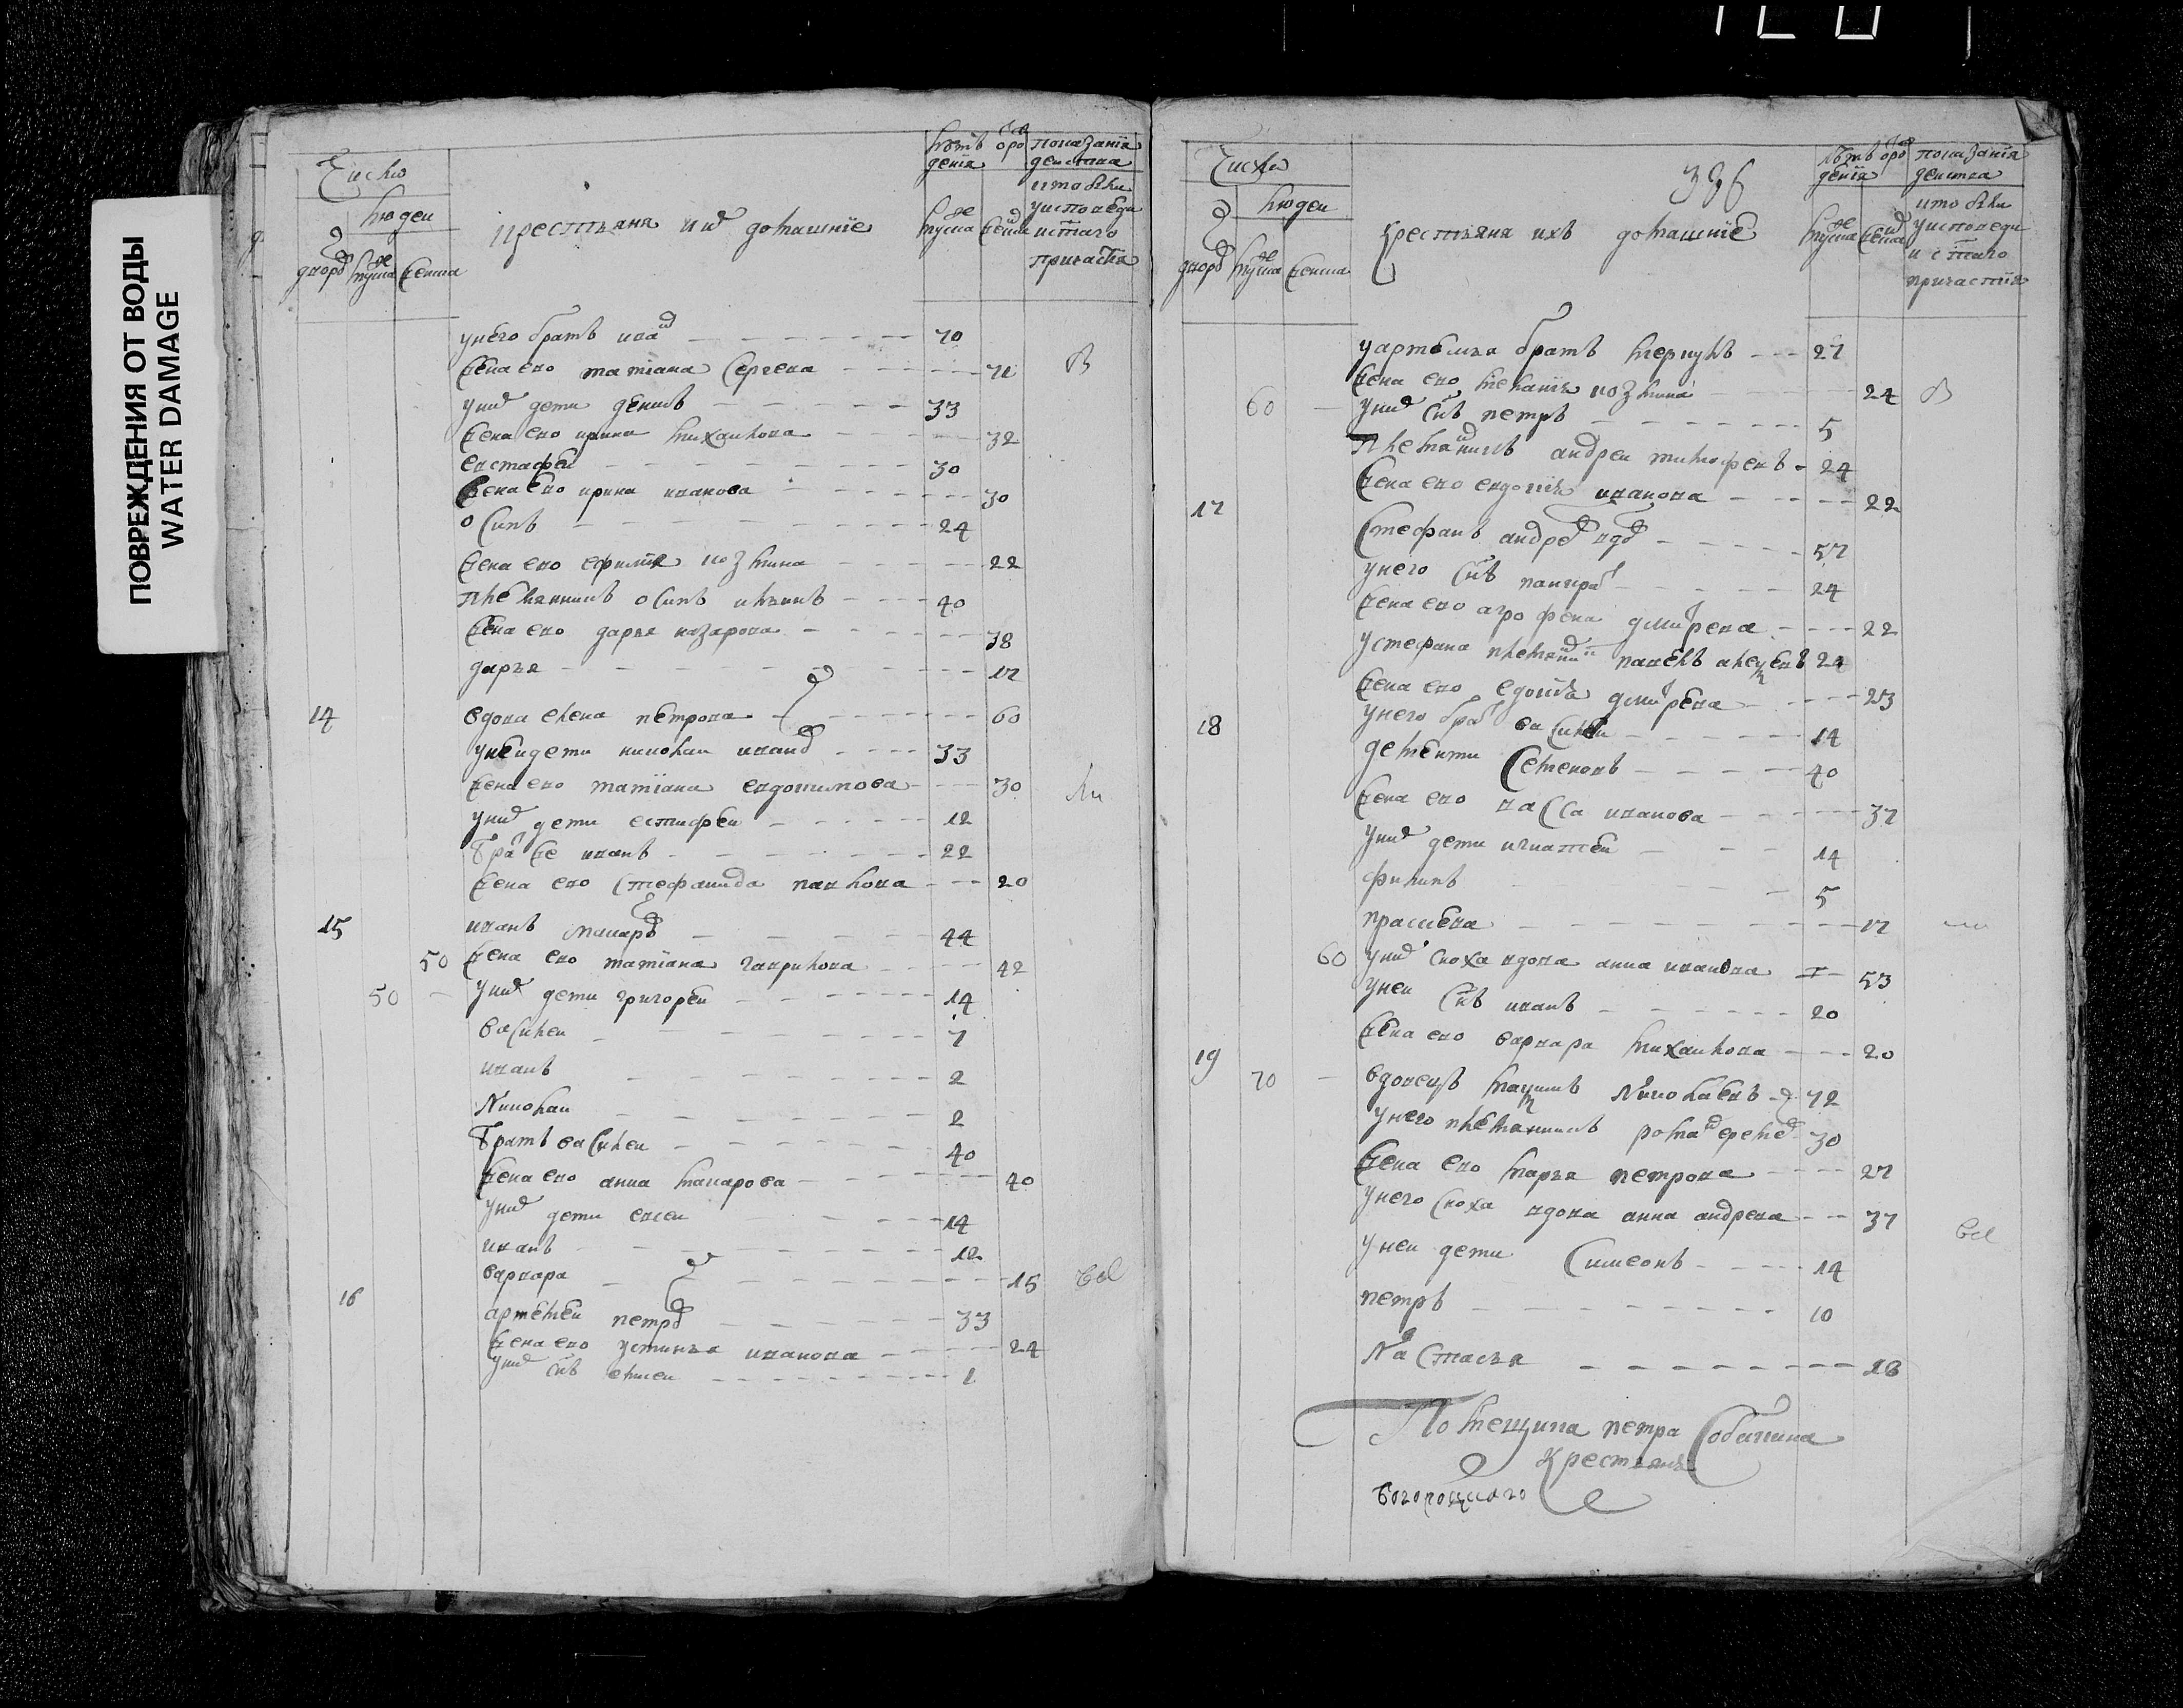 ПОВРЕЖДЕНИЯ ОТ ВОДЫ
WATER DAMAGE
Число
людеи
дворов мужеска женска
крестьяня их домашние
лѣтъ от рождения
мужеска женска
показания деиства
кто были у исповеди и святаго причастия
у него братъ иван 70
жена ево татiана сергеева 71
у них дети денисъ 33
жена ево ирина михаилова 32
евстафеи 30
жена ево ирина иванова 30
осипъ 24
жена ево ефимия козмина 22
племянникъ осипъ ильинъ 40
жена ево дарья назарова 38
дарья 17
14 вдова елена петрова 60
у неи дети николаи иванов 33
жена ево татiана евдокимова 30
у них дети естифеи 12
брат же иванъ 22
жена ево стефанида павлова 20
15 иванъ макаров 44
50 жена ево татiана гаврилова 42
50 у них дети григореи 14
василеи 7
иванъ 2
николаи 2
братъ василеи 40
жена ево анна макарова 40
у них дети елсеи 14
иванъ 12
варвара 15
16 артемеи петров 33
жена ево устинья иванова 24
у них снъ 1
396
Число
людеи
дворов мужеска женска
крестьяня ихъ домашние
лѣтъ от рождения
мужеска женска
показания деиства
кто были у исповеди и святаго причастия
у артемья братъ меркулъ 27
жена ево мелания козмина 24
60 у них снъ петръ 5
племянникъ андреи тимофеевъ 24
жена ево евдокия иванова 22
17 стефанъ андреев вдов 57
у него снъ панкрат 24
жена ево агрофена дмитрева 22
у стефана племянник павелъ алексеевъ 24
жена ево едокия дмитрева 23
18 у него брат василеи 14
дементи семеновъ 40
жена ево васса иванова 37
у них дети игнатеи 14
филипъ 5
прасковя 17
60 у них сноха вдова анна иванова 53
у неи снъ иванъ 20
жена ево варвара михаилова 20
19
70 вдовецъ максимъ николаевъ 72
у него племянникъ роман еремеев 30
жена ево марья петрова 27
у него сноха вдова анна андреева 37
у неи дети симеонъ 14
петръ 10
настасья 18
Помещика петра Собакина
Крестьянъ
богороцкаго